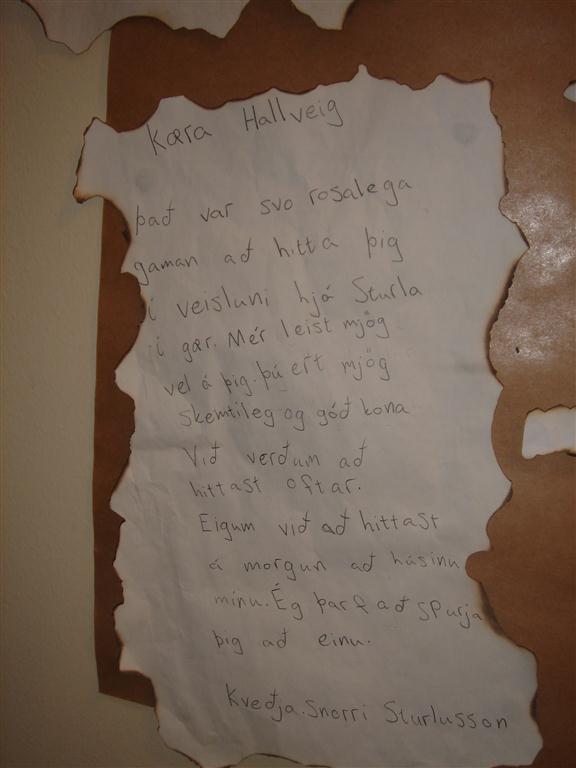 Kæra Hallveig
það var svo rosalega
gaman að hitta þig
í veisluni hjá Sturla
í gær. Mér leist mjög
vel á þig. þú ert mjög
skemtileg og góð kona
Við verðum að
hittast oftar.
Eigum við að hittast
á morgun að húsinu
mínu. Ég þarf að spurja
þig að einu.
Kveðja. Snorri Sturlusson